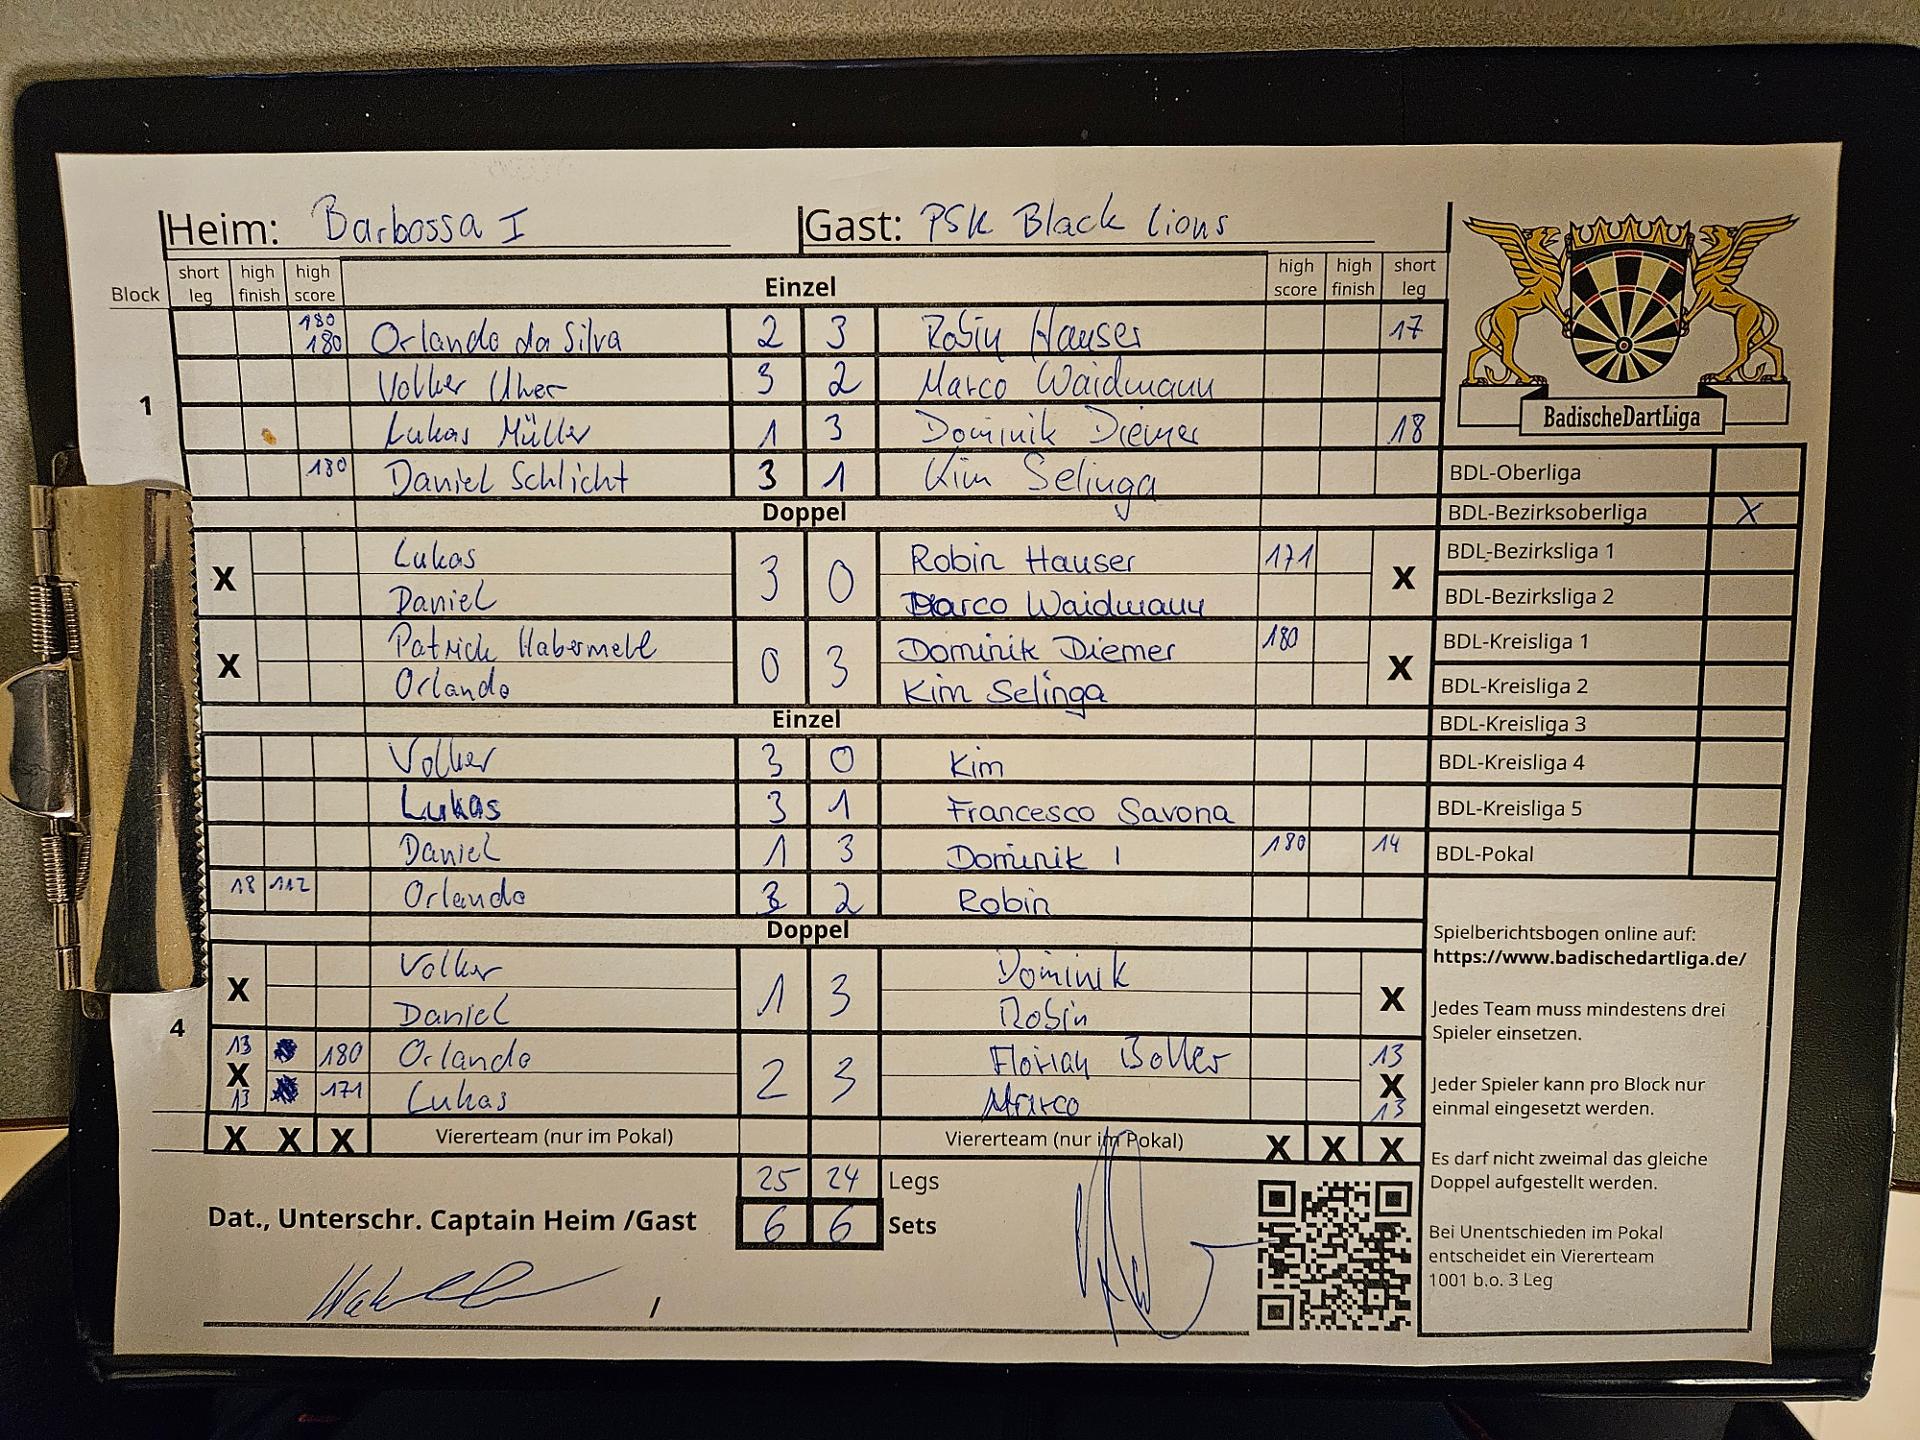 Heim: Barbossa I Gast: PSK Black Lions
Block short leg high finish high score Einzel high score high finish short leg
180 180 Orlando da Silva 2 3 Robin Hauser 17
1 Volker Uher 3 2 Marco Waidmann
Lukas Müller 1 3 Dominik Diemer 18
180 Daniel Schlicht 3 1 Kim Selinga
Doppel
X Lukas 3 0 Robin Hauser 171 X
Daniel Marco Waidmann
X Patrick Habermehl 0 3 Dominik Diemer 180 X
Orlando Kim Selinga
Einzel
Volker 3 0 Kim
Lukas 3 1 Francesco Savona
Daniel 1 3 Dominik 180 14
18 112 Orlando 3 2 Robin
Doppel
X Volker 1 3 Dominik X
Daniel Robin
4
13 180 Orlando 2 3 Florian 13
X X
13 171 Lukas Marco 13
X X X Viererteam (nur im Pokal) Viererteam (nur im Pokal) X X X
25 24 Legs
Dat., Unterschr. Captain Heim /Gast 6 6 Sets
/
BadischeDartLiga
BDL-Oberliga
BDL-Bezirksoberliga X
BDL-Bezirksliga 1
BDL-Bezirksliga 2
BDL-Kreisliga 1
BDL-Kreisliga 2
BDL-Kreisliga 3
BDL-Kreisliga 4
BDL-Kreisliga 5
BDL-Pokal
Spielberichtsbogen online auf:
https://www.badischedartliga.de/
Jedes Team muss mindestens drei
Spieler einsetzen.
Jeder Spieler kann pro Block nur
einmal eingesetzt werden.
Es darf nicht zweimal das gleiche
Doppel aufgestellt werden.
Bei Unentschieden im Pokal
entscheidet ein Viererteam
1001 b.o. 3 Leg